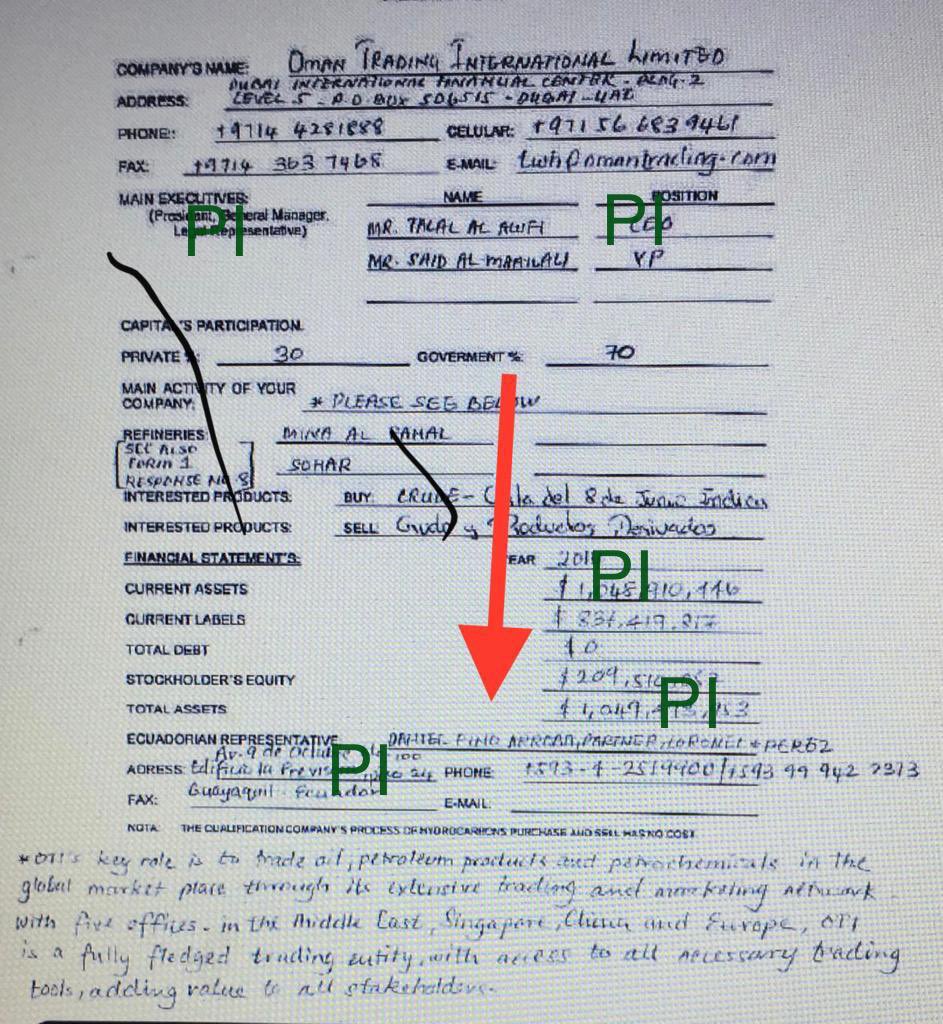 COMPANY'S NAME: OMAN TRADING INTERNATIONAL LIMITED
DUBAI INTERNATIONAL FINANCIAL CENTER - BLDG-2
ADDRESS: LEVEL 5 - P.O BOX 506515 - DUBAI - UAE
PHONE: +9714 4281888 CELULAR: +971 56 683 9461
FAX: +9714 363 7468 E-MAIL: @omantrading.com
MAIN EXECUTIVES: NAME POSITION
(President, General Manager,
Legal Representative)
MR. TALAL AL AUFI CEO
MR. SAID AL VP
PI PI
CAPITAL'S PARTICIPATION.
PRIVATE %: 30 GOVERMENT %: 70
MAIN ACTIVITY OF YOUR
COMPANY: * PLEASE SEE BELOW
REFINERIES: MINA AL FAHAL
SEE ALSO
FORM 1
RESPONSE NO 8
SOHAR
INTERESTED PRODUCTS: BUY CRUDE - del 8 de
INTERESTED PRODUCTS: SELL Crudo y Productos Derivados
FINANCIAL STATEMENT'S: YEAR
PI
CURRENT ASSETS
CURRENT LABELS
TOTAL DEBT $ 0
STOCKHOLDER'S EQUITY
PI
TOTAL ASSETS
ECUADORIAN REPRESENTATIVE DANIEL PINO ARROBA, PARTNER, CORONEL & PEREZ
Av. 9 de Octubre 100
ADRESS: Edificio la PHONE: +593-4-2519900/+593 99 942 7373
PI
FAX: Guayaquil - Ecuador E-MAIL:
NOTA: THE QUALIFICATION COMPANY'S PROCESS OF HYDROCARBONS PURCHASE AND SELL HAS NO COST.
*OTI's key role is to trade oil, petroleum products and petrochemicals in the
global market place through its extensive trading and marketing network.
with five offices. in the Middle East, Singapore, China and Europe, OTI
is a fully fledged trading entity, with access to all necessary trading
tools, adding value to all stakeholders.